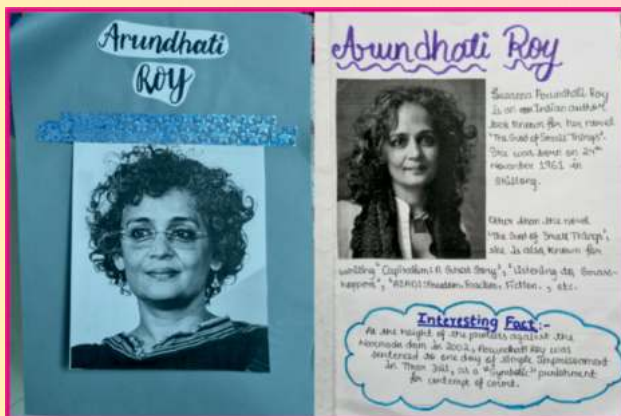 Arundhati
Roy
Arundhati Roy
Suzanna Arundhati Roy
is an Indian author
best known for her novel
"The God of Small Things".
She was born on 24th
November 1961 in
Shillong.
Other than the novel
"The God of Small Things",
she is also known for
writing "Capitalism: A Ghost Story", "Listening to Grass-
hoppers", "AZADI: Freedom, Fascism, Fiction., etc.
Interesting Fact:-
At the height of the protests against the
Narmada dam in 2002, Arundhati Roy was
sentenced to one day of simple Imprisonment
in Tihar Jail, as a "Symbolic" punishment
for contempt of court.